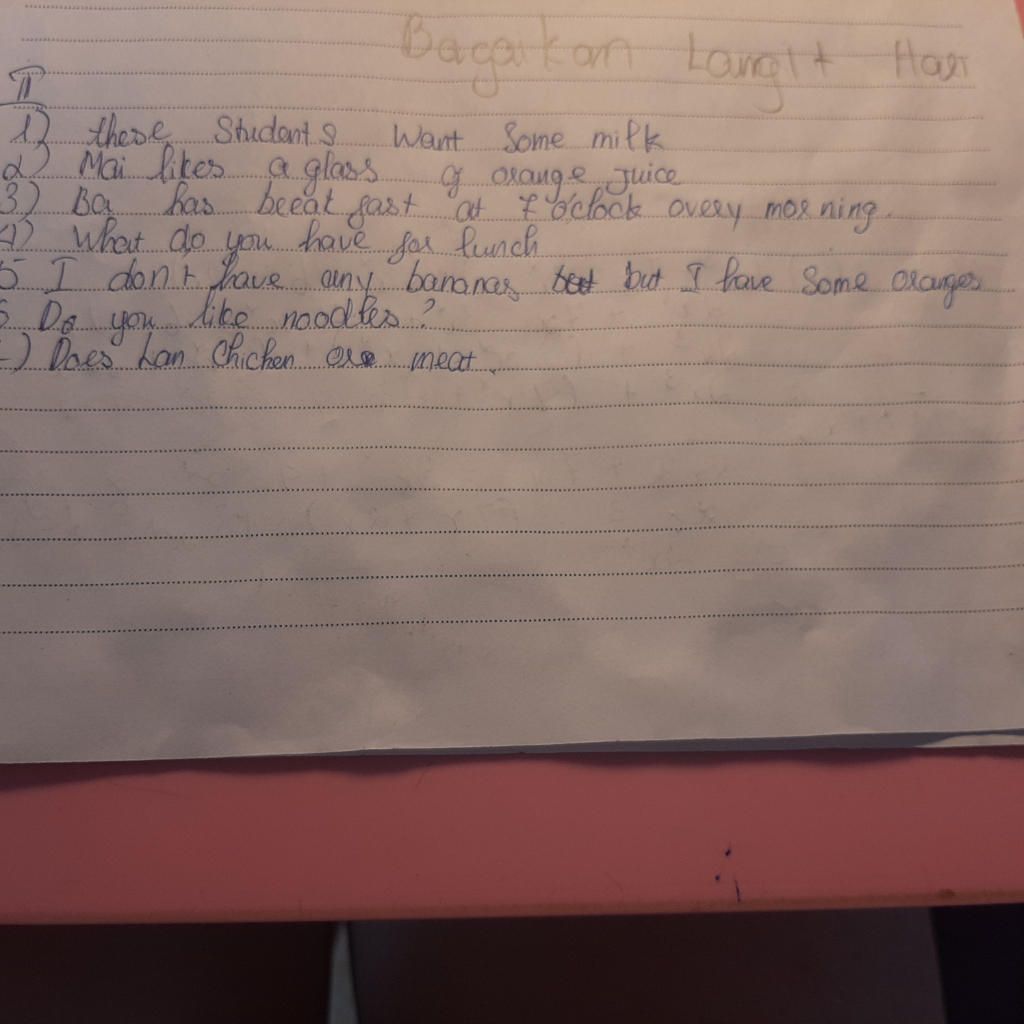 Bagaikan Langit Hari
II
1) these Students Want Some milk
2) Mai likes a glass of orange juice
3) Ba has breeat fast at 7 o'clock overy morning.
4) What do you have for lunch
5 I don't have any bananas, but I have Some oranges
6 Do you like noodles?
) Does Lan Chicken ore meat.